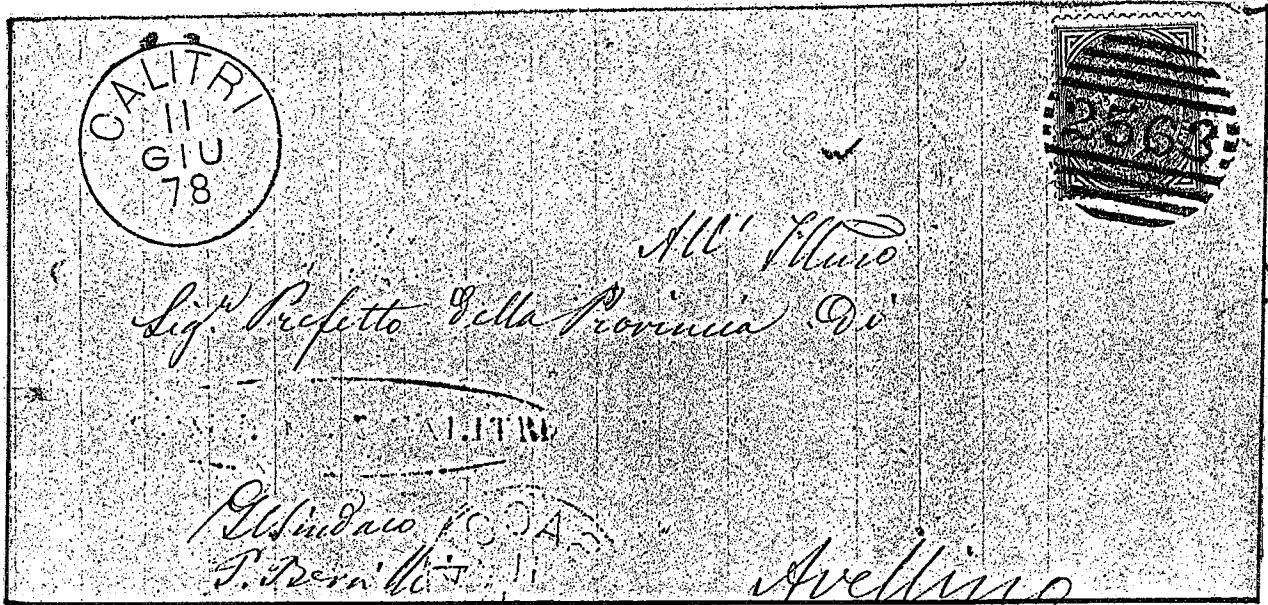 CALITRI
11
GIU
78
All' Illmo
Sig.r Prefetto Della Provincia Di
CALITRI
Il Sindaco
Avellino